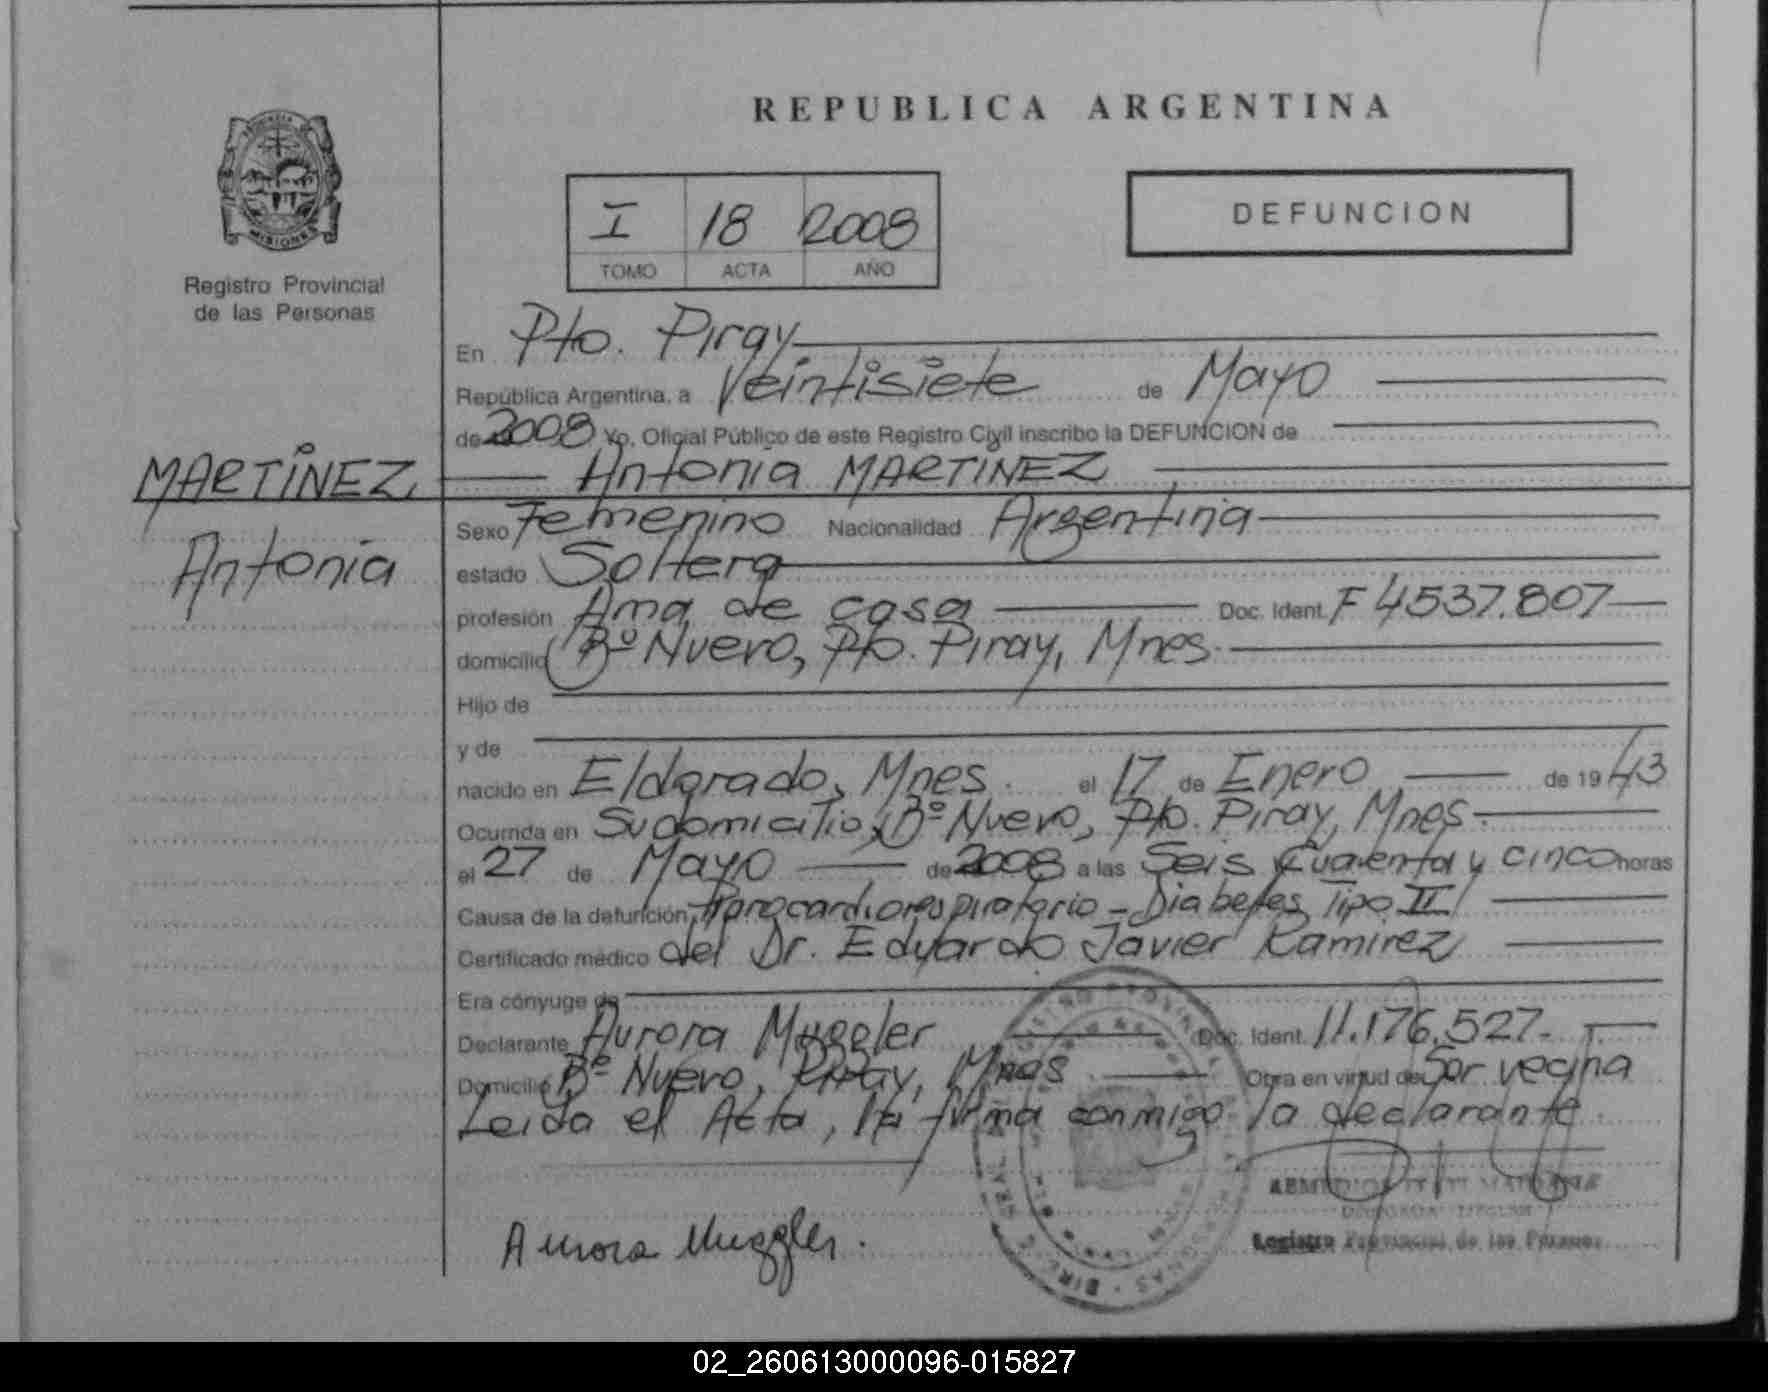 REPUBLICA ARGENTINA
MISIONES
Registro Provincial
de las Personas
I 18 2008
TOMO ACTA AÑO
DEFUNCION
MARTINEZ,
Antonia
En Pto. Piray
República Argentina, a Veintisiete de Mayo
de 2008 Yo, Oficial Público de este Registro Civil inscribo la DEFUNCION de
Antonia MARTINEZ
Sexo Femenino Nacionalidad Argentina
estado Soltera
profesión Ama de casa Doc. Ident. F 4537.807
domicilio Bº Nuevo, Pto. Piray, Mnes.
Hijo de
y de
nacido en Eldorado, Mnes. el 17 de Enero de 1943
Ocurrida en Su domicilio, Bº Nuevo, Pto. Piray, Mnes.
el 27 de Mayo de 2008 a las Seis Cuarenta y cinco horas
Causa de la defunción, Parocardiorespiratorio - Diabetes Tipo II
Certificado médico del Dr. Eduardo Javier Ramirez
Era cónyuge de
Declarante Aurora Muggler Doc. Ident. 11.176.527.
Domicilio Bº Nuevo, Piray, Mnes Obra en virtud de Ser vecina
Leida el Acta, la firma conmigo la declarante.
Aurora Muggler.
Registro Provincial de las Personas
02_260613000096-015827